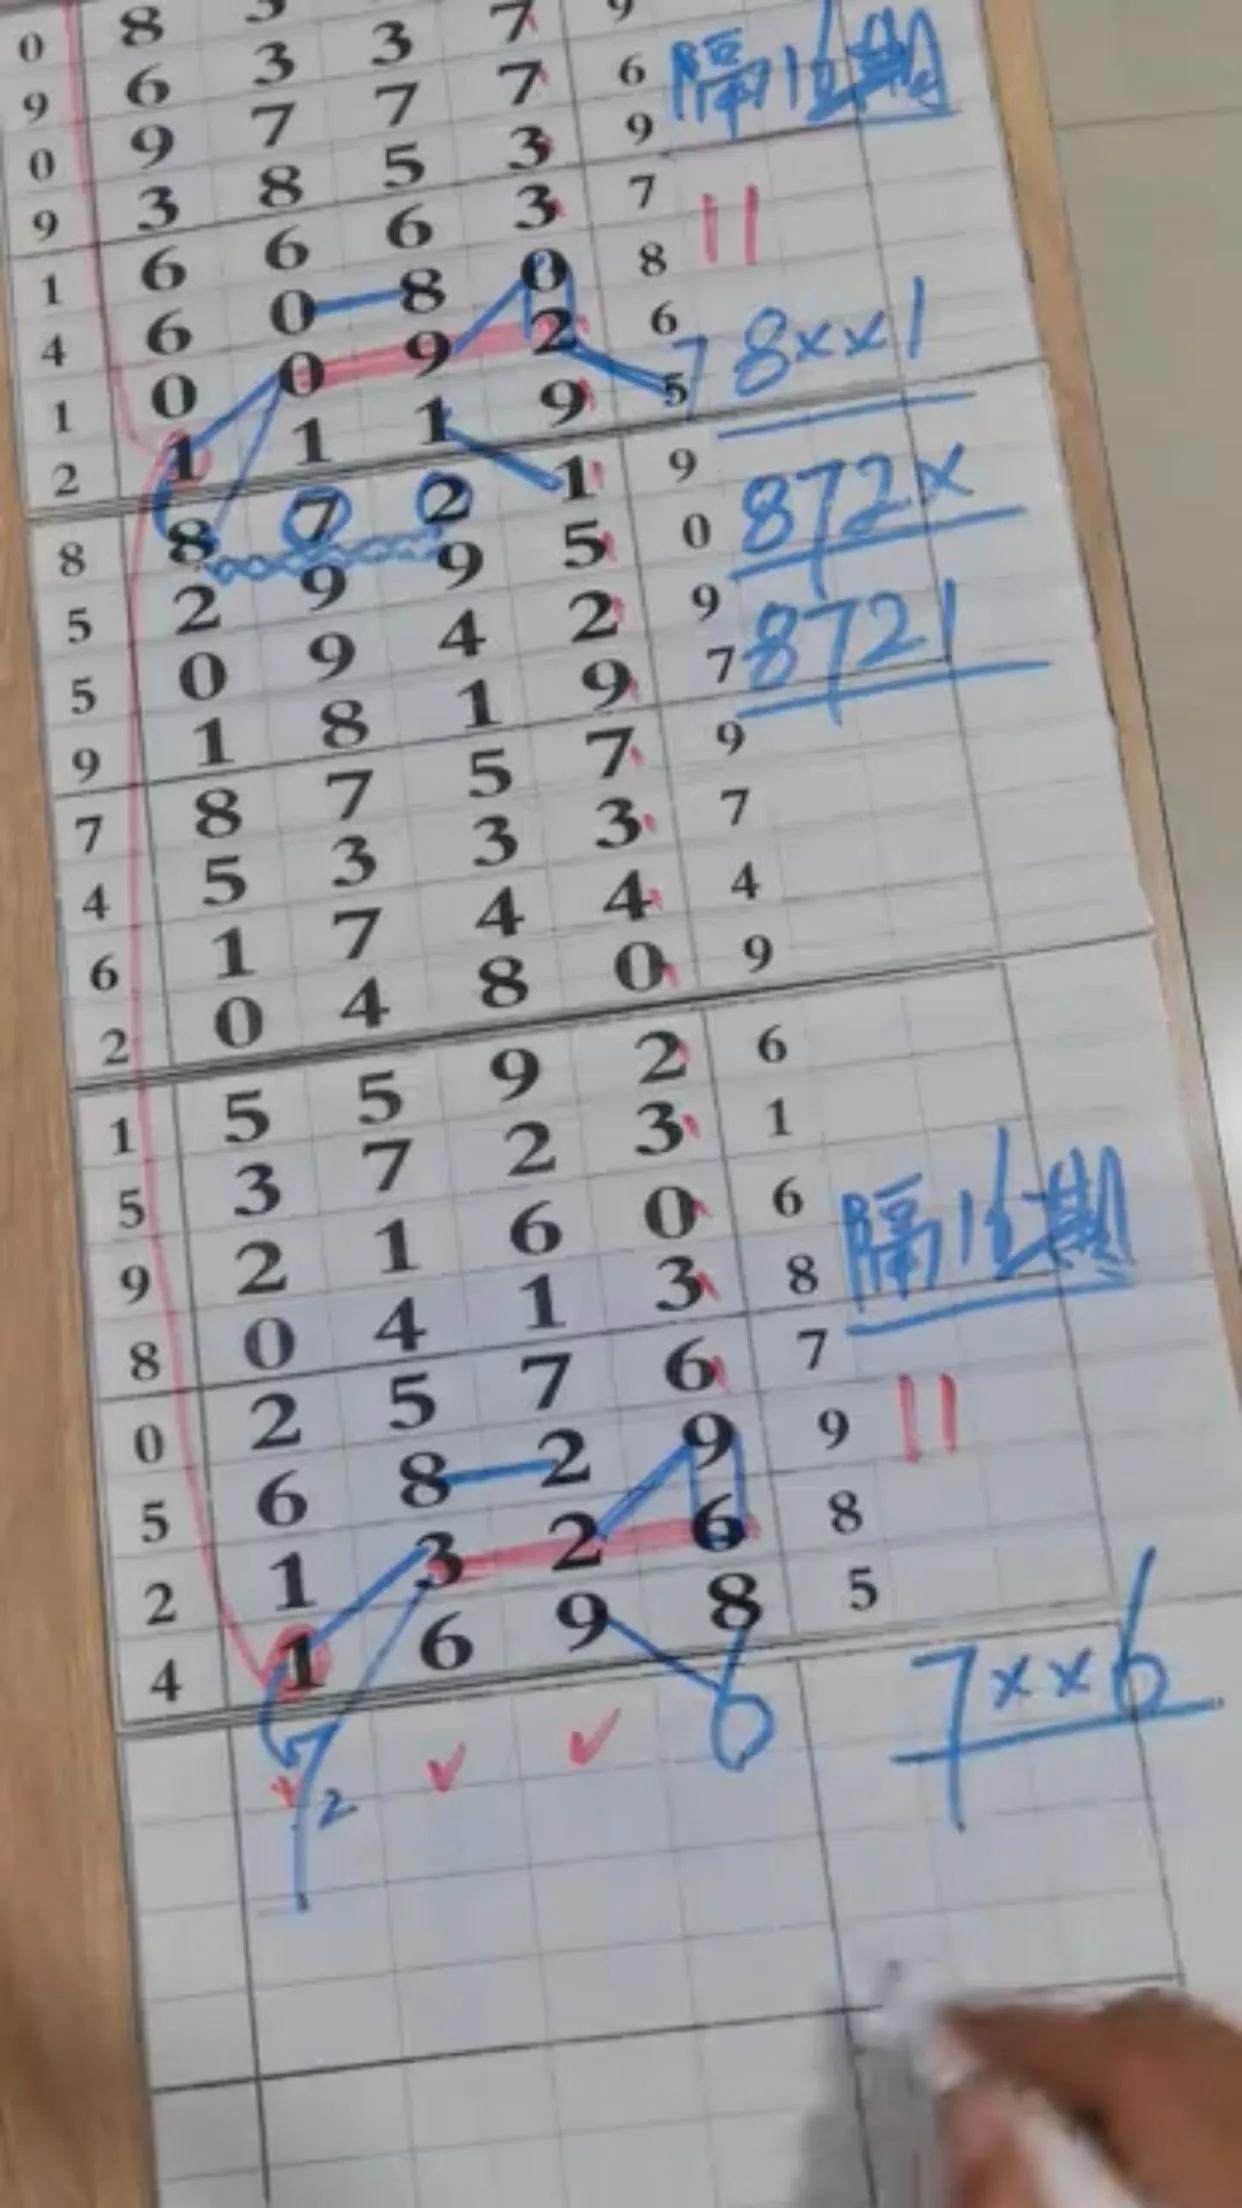 0 8 3 7 9
9 6 3 3 7 6 隔12期
0 9 7 7 3 9
9 3 8 5 3 7
1 6 6 6 0 8
4 6 0 8 2 6 8xx1
1 0 0 9 9 5 7
2 1 1 1 1 9 872x
8 8 7 2 5 0
5 2 9 9 2 9 8721
5 0 9 4 9 7
9 1 8 1 7 9
7 8 7 5 3 7
4 5 3 3 4 4
6 1 7 4 0 9
2 0 4 8
1 5 5 9 2 6
5 3 7 2 3 1
9 2 1 6 0 6 隔12期
8 0 4 1 3 8
0 2 5 7 6 7
5 6 8 2 9 9
2 1 3 2 6 8
4 1 6 9 8 5
7 2 6 7xx6